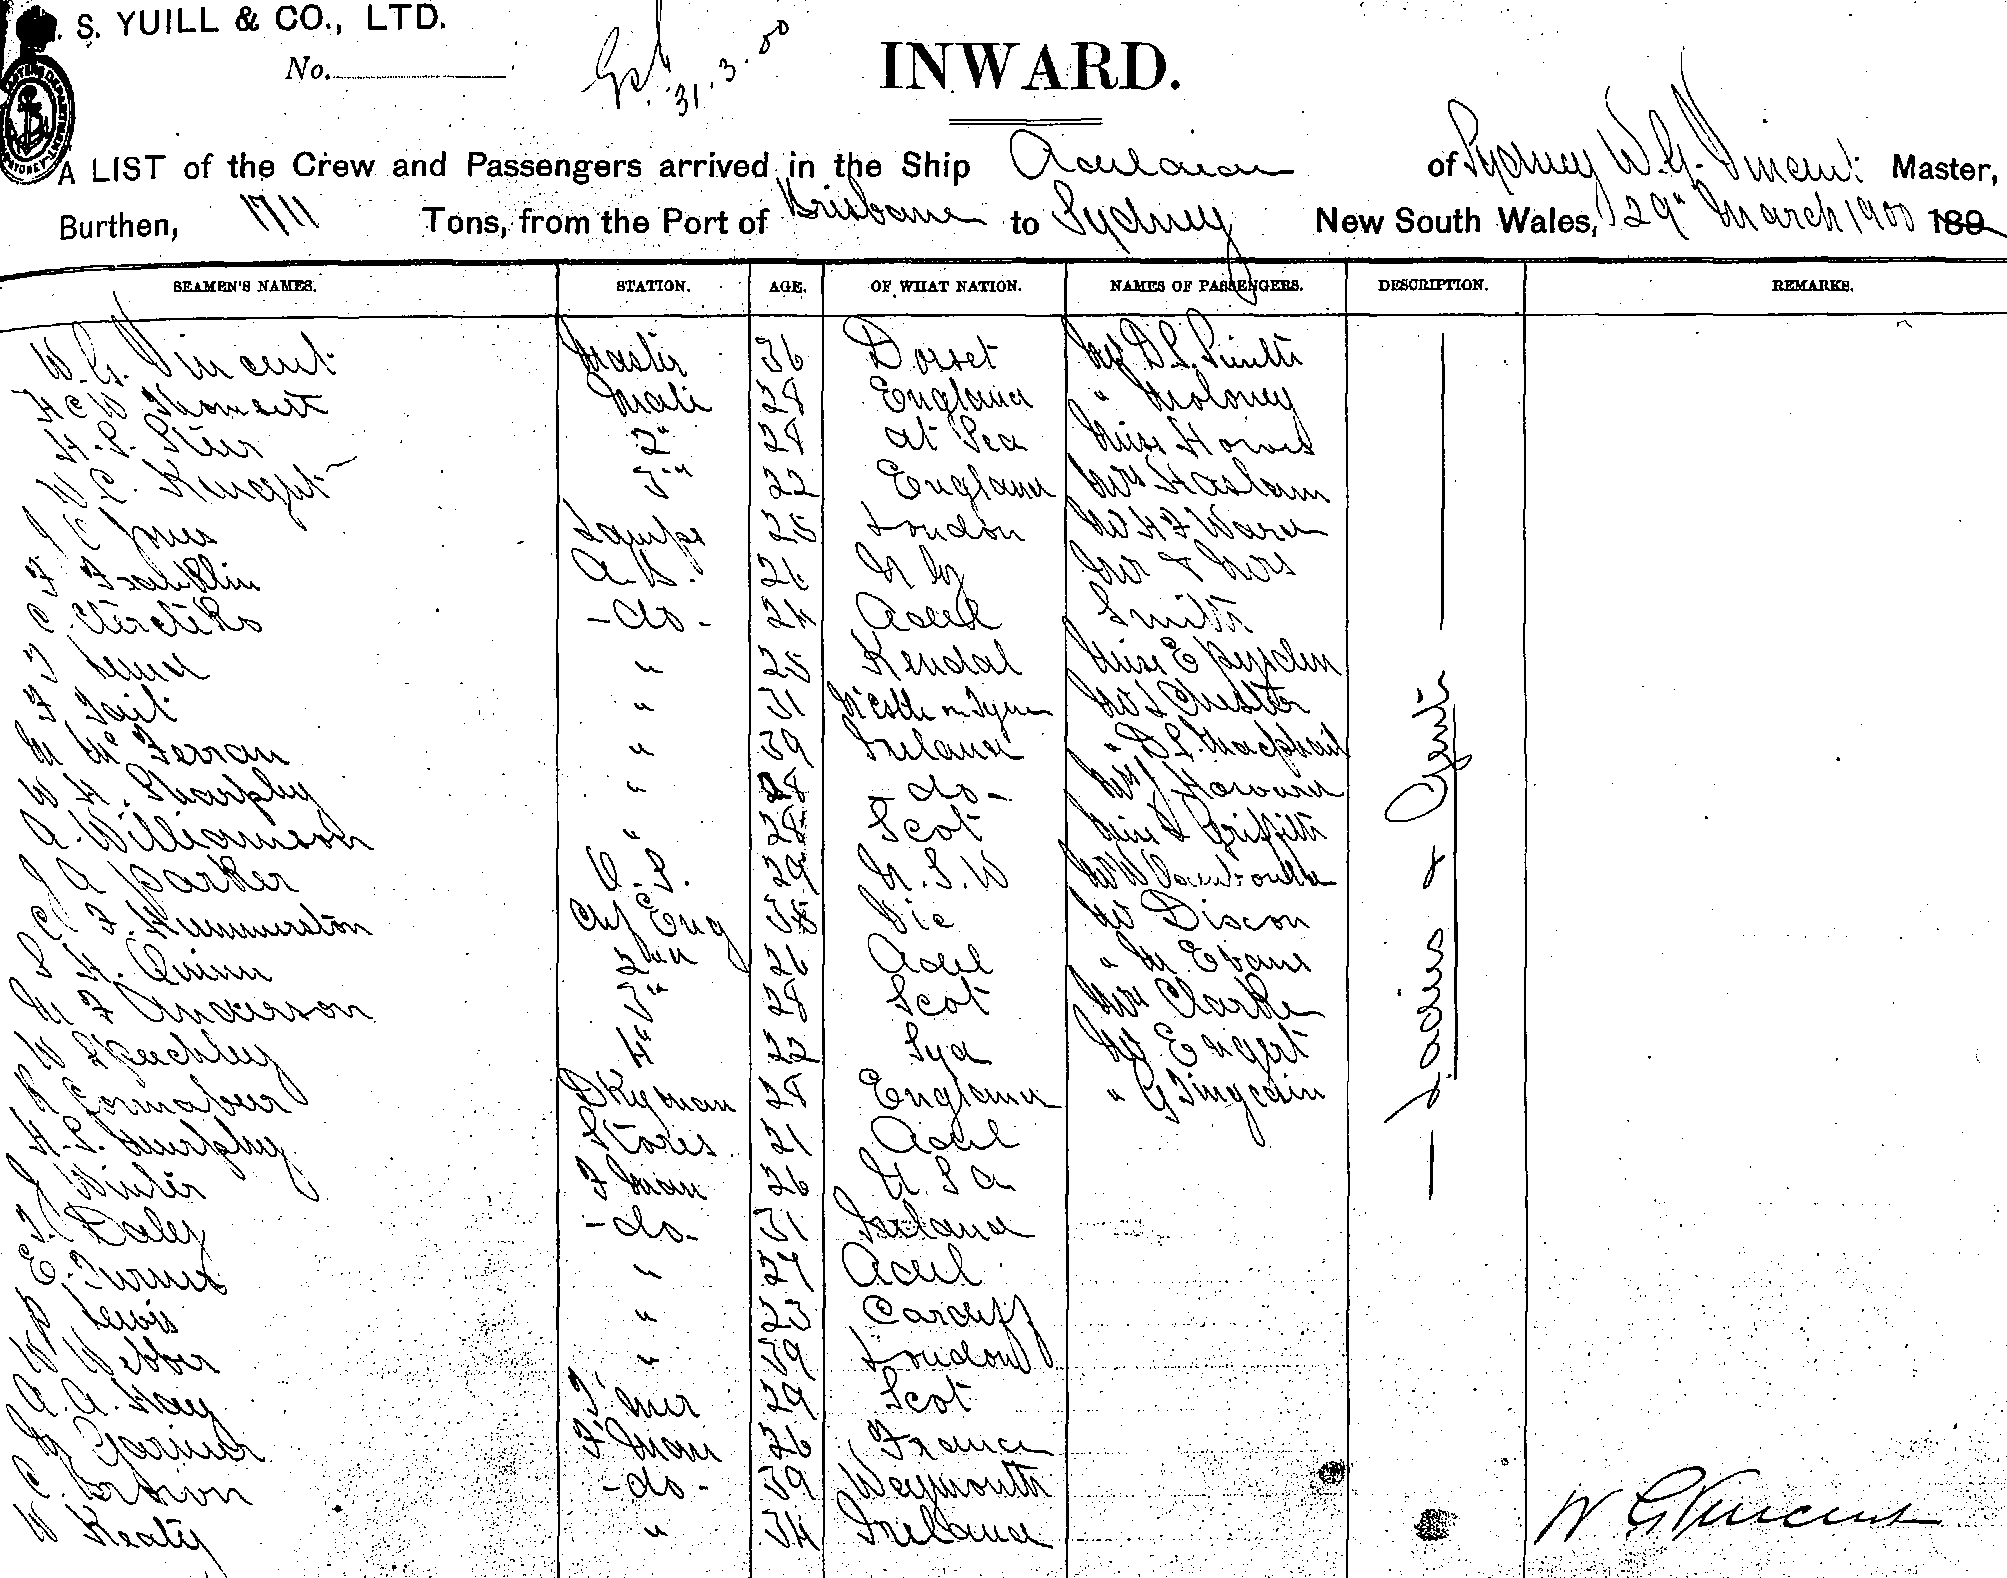 . S. YUILL & CO., LTD.
No.
31.3.00
INWARD.
A LIST of the Crew and Passengers arrived in the Ship of Sydney W. G. Vincent Master,
Burthen, 1711 Tons, from the Port of Brisbane to Sydney New South Wales, 29" March 1900 189
SEAMEN'S NAMES. STATION. AGE. OF WHAT NATION. NAMES OF PASSENGERS. DESCRIPTION. REMARKS.
W. G. Vincent Master 36 Dorset Mr D S. Smith
H C W Mate 28 England " Moloney
H. S. Steer 2" 28 at Sea Miss Howes
W. C. Knight 3" 22 England Mrs Haslam
J C Jones Lamps 25 London Mr H F Ward
F Franklin A.B. 26 Mr & Mrs
C. -do- 24 Adel Smith
T " 25 Kendal Miss E
F Tait " 31 N'Castle on Tyne Mr S Chester
M McFerran " 39 Ireland " D S. Macphail
W H. Sharpley " 28 -do- Mrs J Howard
A. Williamson " 28 Scot Miss Griffith
J A Parker O.S. 29 N.S.W Mr W
C F. Hummerston Chf Eng 38 Vic Mr Discon
S H. Quinn 2nd " 26 Adel " M Evans
M F Anderson 3" 28 Scot Mrs Clarke
W Speechley 4" 22 Syd Mr Engert
R DKyman 28 England " G
H. S. Murphy Stores 21 Adel
J Winter F'man 26 U.S.A
T. Daley -do- 31 Ireland
E. Turner " 27 Adel
P Lewis " 23 Cardiff
W Webber " 39 London
A. A. Hay T'mer 29 Scot
M F'man 26 France
C. Brown -do- 39 Weymouth
W Keaty " 34 Ireland
— Ladies & Gents —
W G Vincent